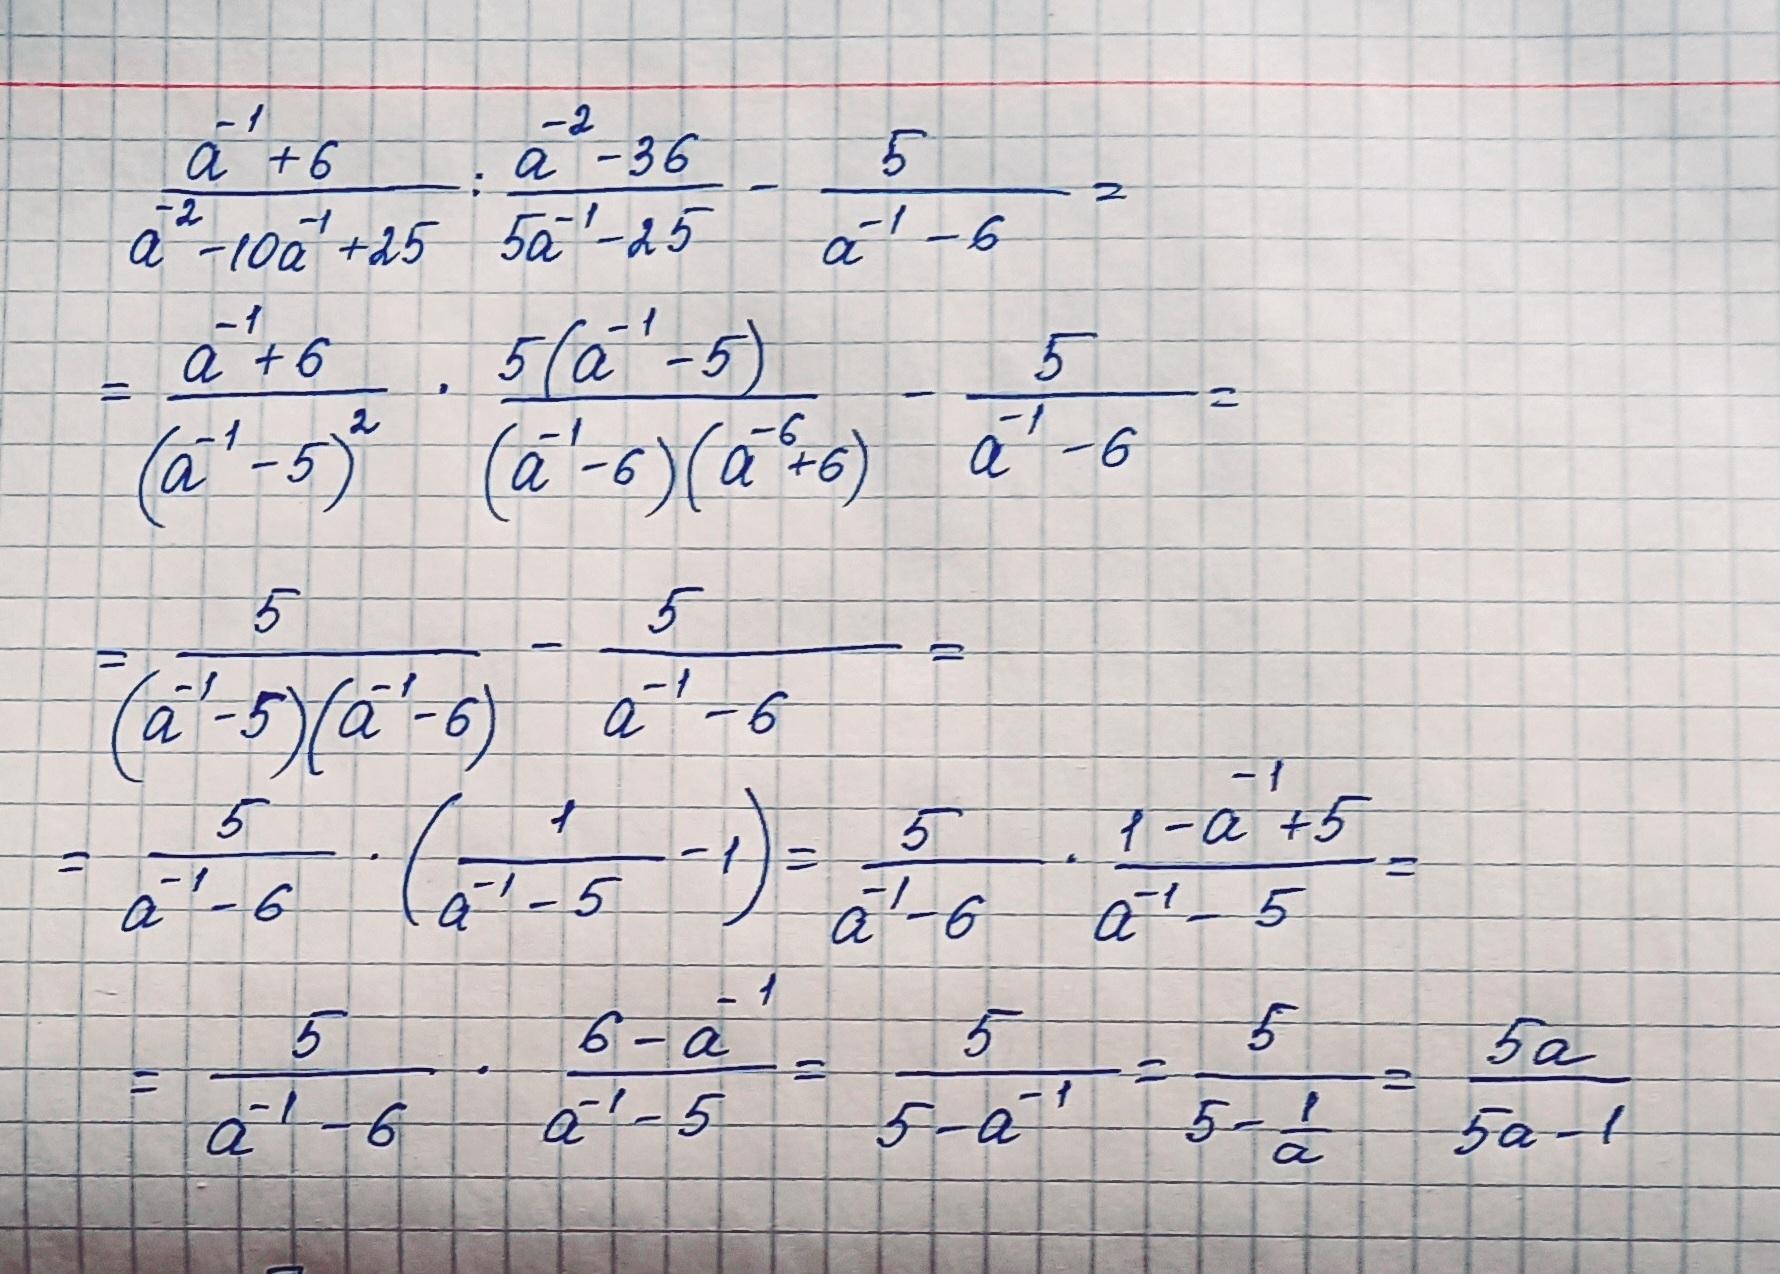 (a⁻¹+6)/(a⁻²-10a⁻¹+25) : (a⁻²-36)/(5a⁻¹-25) - 5/(a⁻¹-6) =
= (a⁻¹+6)/(a⁻¹-5)² · 5(a⁻¹-5)/((a⁻¹-6)(a⁻⁶+6)) - 5/(a⁻¹-6) =
= 5/((a⁻¹-5)(a⁻¹-6)) - 5/(a⁻¹-6) =
= 5/(a⁻¹-6) · (1/(a⁻¹-5) - 1) = 5/(a⁻¹-6) · (1-a⁻¹+5)/(a⁻¹-5) =
= 5/(a⁻¹-6) · (6-a⁻¹)/(a⁻¹-5) = 5/(5-a⁻¹) = 5/(5-1/a) = 5a/(5a-1)